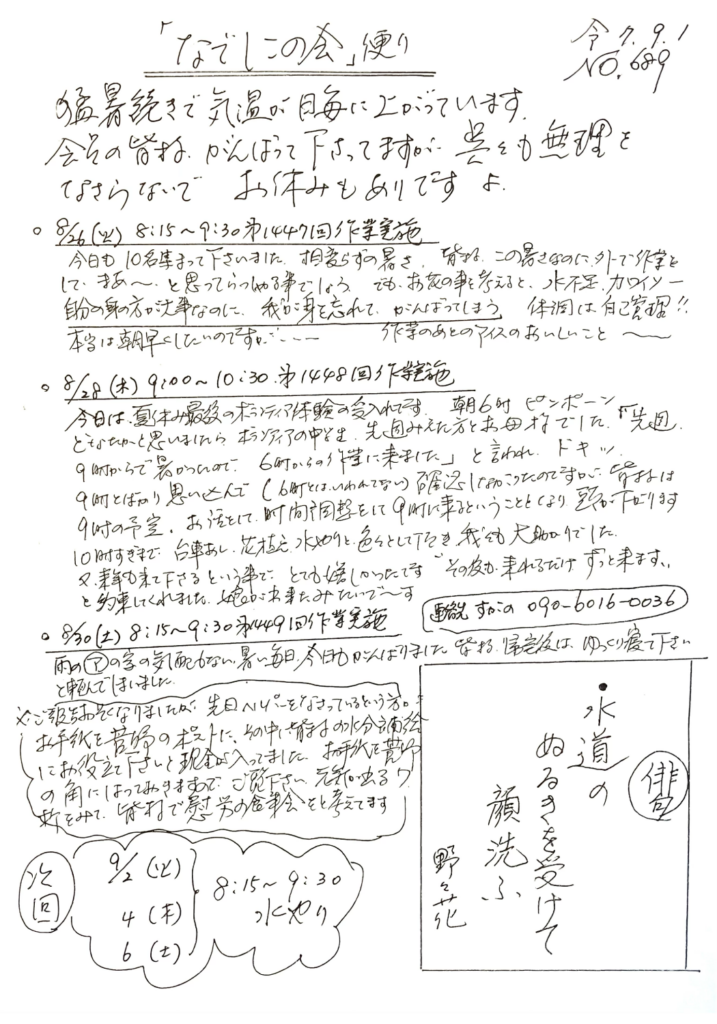 「なでしこの会」便り
令7.9.1
NO.689
猛暑続きで気温が日毎に上がっています。
会員の皆様、がんばって下さってますが、呉々も無理を
なさらないで お休みもありですよ。
○ 8/26(火) 8:15～9:30 第1447回作業実施
今日も10名集まって下さいました。相変らずの暑さ、皆様、この暑さなのに、外で作業を
して、まあ～、と思ってらっしゃる事でしょう でも、お花の事を考えると、水不足、カワイソー
自分の身の方が大事なのに、我が身を忘れて、がんばってしまう 体調は自己管理!!
本当は朝早くしたいのですが…… 作業のあとのアイスのおいしいこと～～
○ 8/28(木) 9:00～10:30 第1448回作業実施
今日は、夏休み最後のボランティア体験の受入れです。朝6時 ピンポーン
どなたかと思いましたら ボランティアの中学生、先週みえた方とお母様でした。『先週、
9時からで暑かったので、6時からの作業に来ました』と言われ、ドキッ、
9時とばかり思い込んで (6時とはいわれてない) 確認しなかったのですが、皆様は
9時の予定、お話をして、時間調整をして9時に来るということとなり、頭が下がります
10時すぎまで、台車出し、花植え、水やりと、色々として下さり 我々も大助かりでした。
又、来年も来て下さるという事で、とても嬉しかったです "その後も、来れるだけ ずっと来ます、、
と約束してくれました。娘が出来たみたいで～す
連絡先 すがの 090-6016-0036
○ 8/30(土) 8:15～9:30 第1449回作業実施
雨の㋐の字の気配もない暑い毎日、今日もがんばりました 皆様、帰宅後は、ゆっくり寝て下さい
と頼んでしまいました。
※ご報告おそくなりましたが、先日ヘルパーをなさっているという方。
お手紙を菅野のポストに、その中に皆様の水分補給
にお役立て下さいと現金が入ってました。お手紙を菅野
の角にはっておきますので、ご覧下さい 元気が出る
をみて、皆様で慰労の食事会をと考えてます
俳句
・水道の
ぬるきを受けて
顔洗ふ
野々花
次回
9/2 (火)
4 (木)
6 (土)
8:15～9:30
水やり